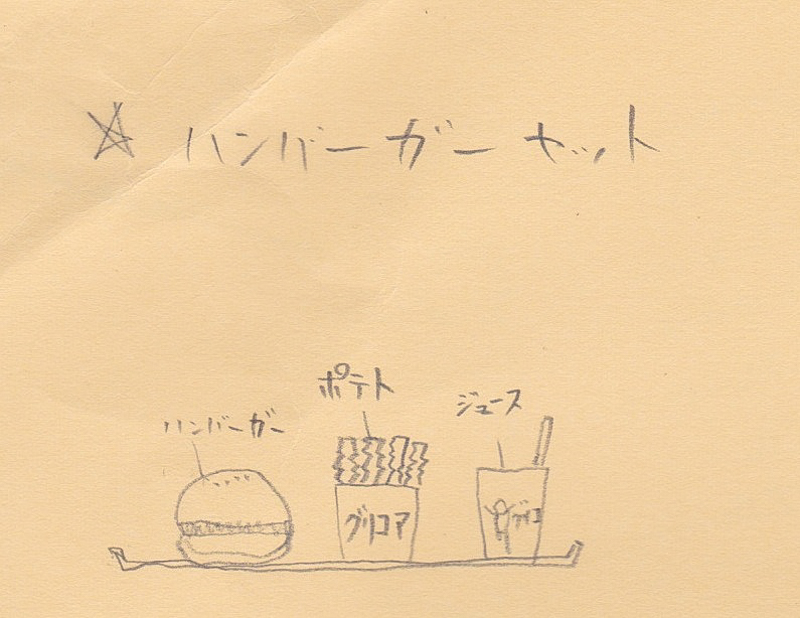 ☆ ハンバーガーセット
ポテト
ジュース
ハンバーガー
グリコア
グリコ